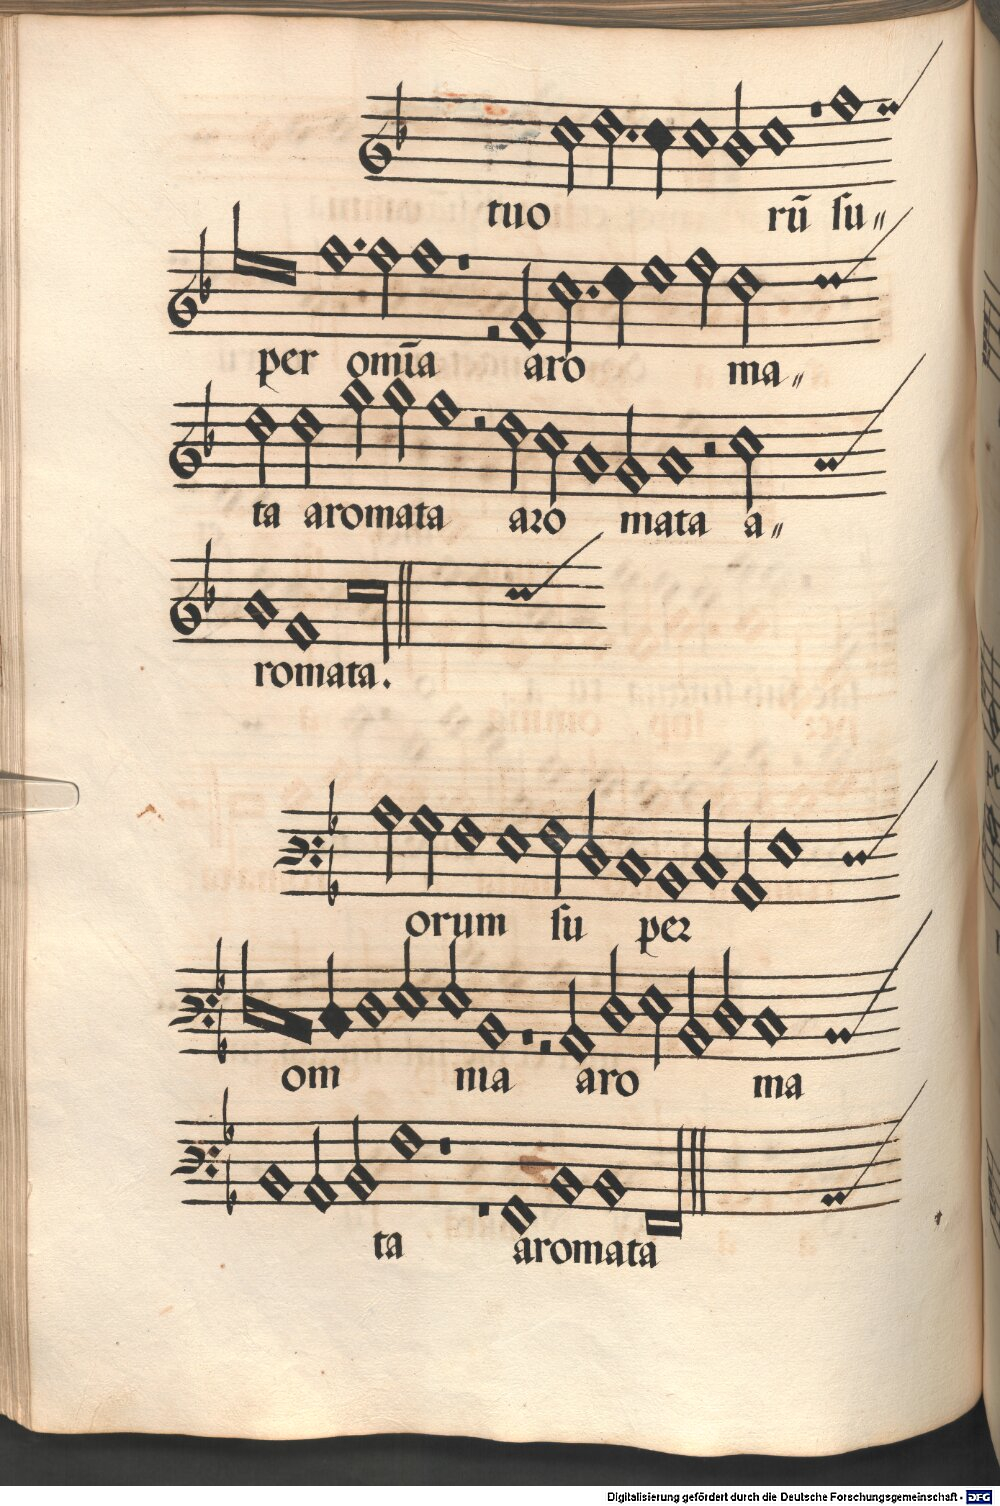 tuo rū su〃
per om̄a aro ma〃
ta aromata aro mata a〃
romata.
orum su per
om ma aro ma
ta aromata
Digitalisierung gefördert durch die Deutsche Forschungsgemeinschaft - DFG